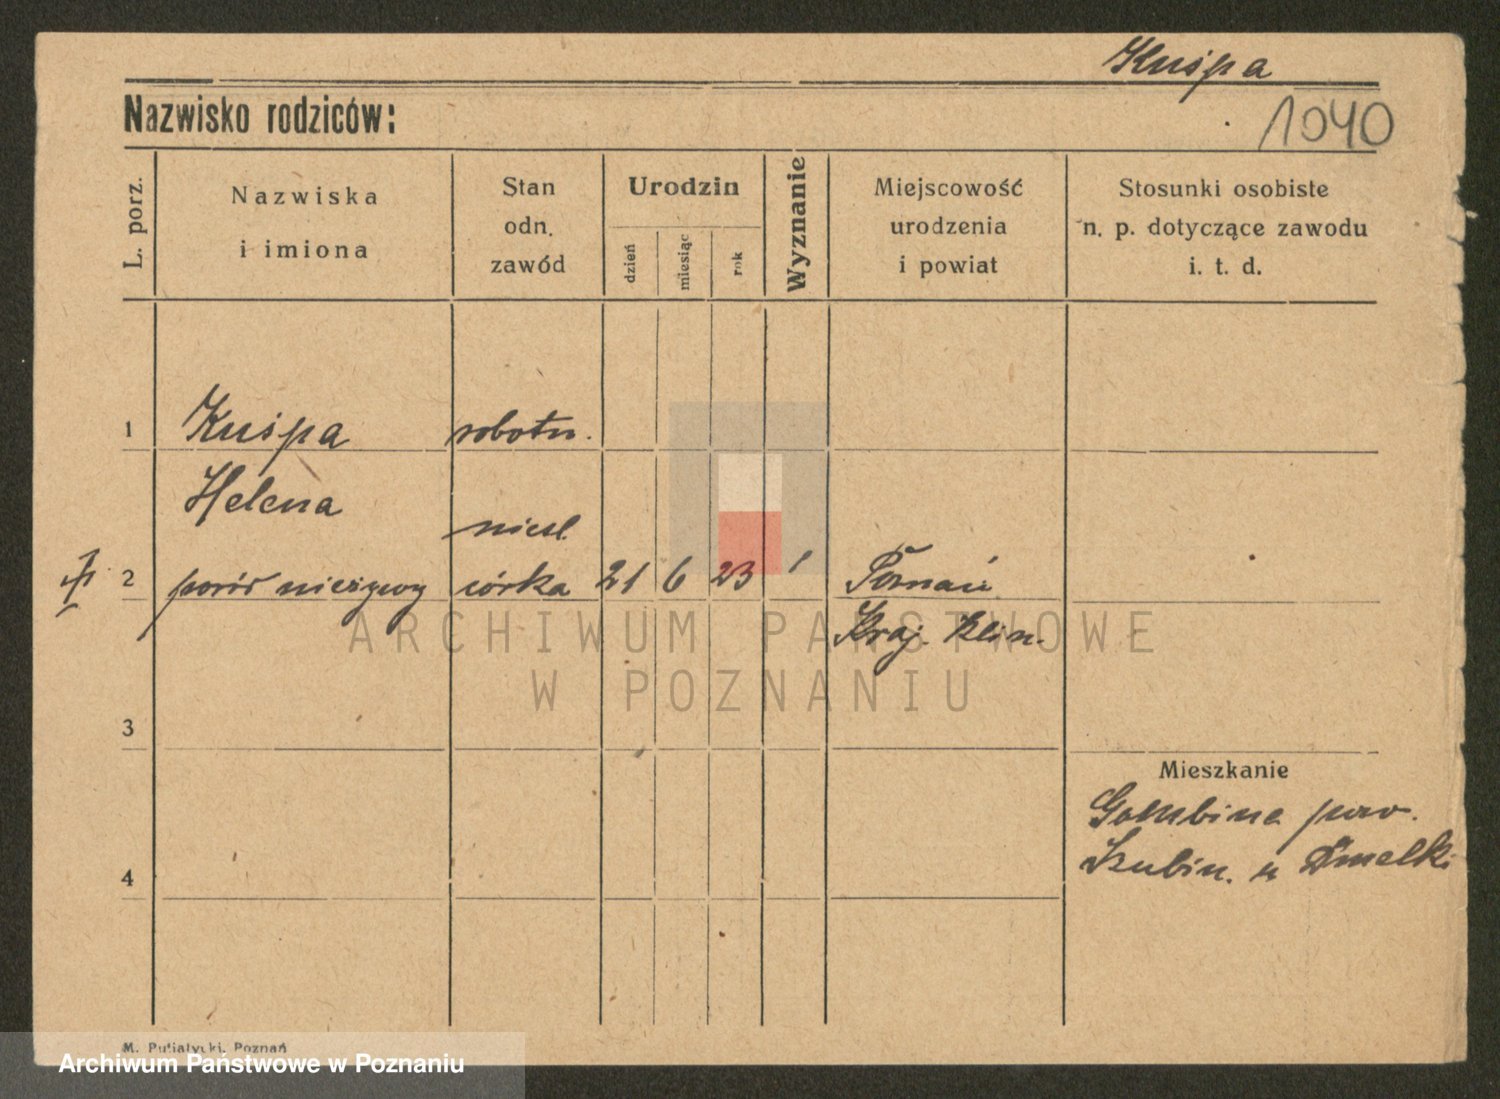 Kuśpa
Nazwisko rodziców:
1040
L. porz.
Nazwiska
i imiona
Stan
odn.
zawód
Urodzin
dzień
miesiąc
rok
Wyznanie
Miejscowość
urodzenia
i powiat
Stosunki osobiste
n. p. dotyczące zawodu
i. t. d.
1 Kuśpa robotn.
Helena
nieśl.
2 poród nieżywy córka 21 6 23 1 Poznań
Kraj. Klin.
ARCHIWUM PAŃSTWOWE
W POZNANIU
3
Mieszkanie
pow.
4
Szubin. u
M. Putiatycki, Poznań
Archiwum Państwowe w Poznaniu